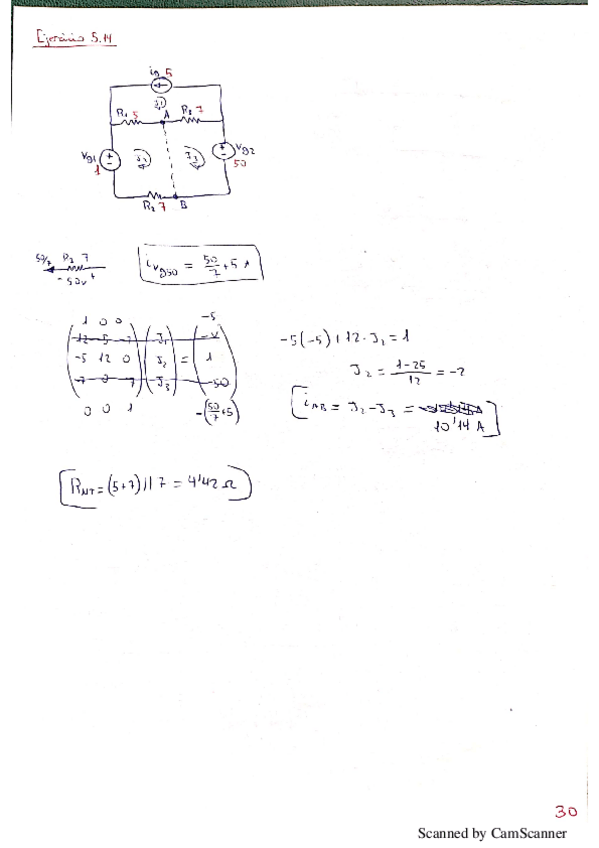 Ejercicio 5.14
ig 5
J1
R1 5
A
R3 7
Vg1
1
J2
J3
Vg2
50
R2 7
B
50/7 R3 7
- 50V +
iVg50 = 50/7 + 5 A
1 0 0
12 -5 -7
-5 12 0
-7 0 7
0 0 1
J1
J2
J3
=
-5
-V
1
-50
-(50/7+5)
-5(-5)+12·J2 = 1
J2 = 1-25/12 = -2
iAB = J2 - J3 =
10'14 A
RNT = (5+7)||7 = 4'42 Ω
30
Scanned by CamScanner